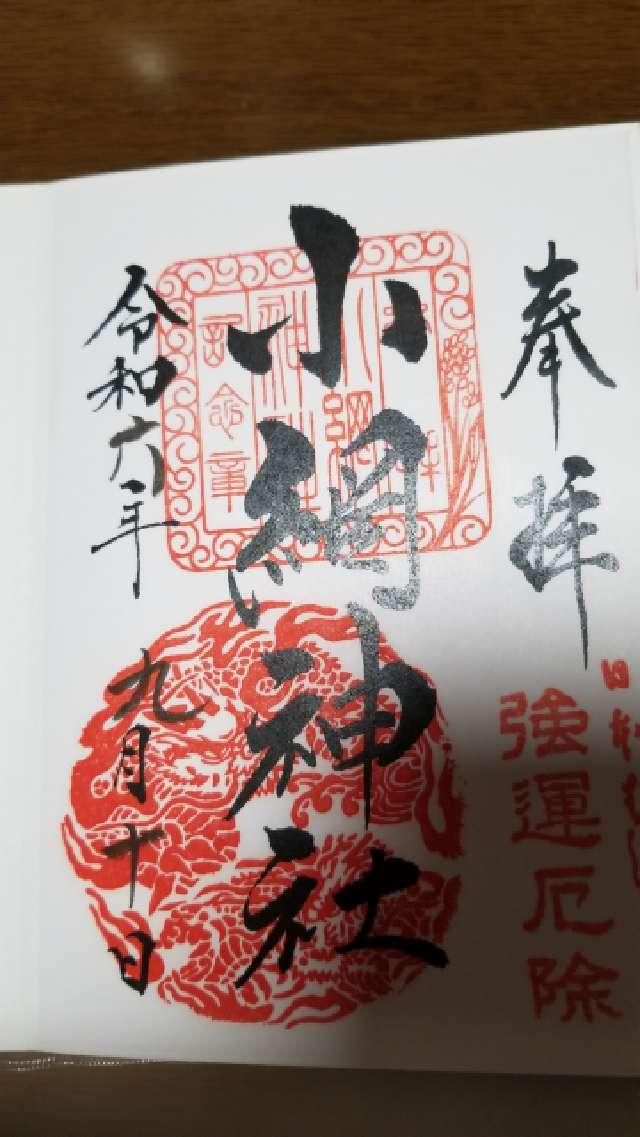 奉拝
強運厄除
小網神社
令和六年
九月十日